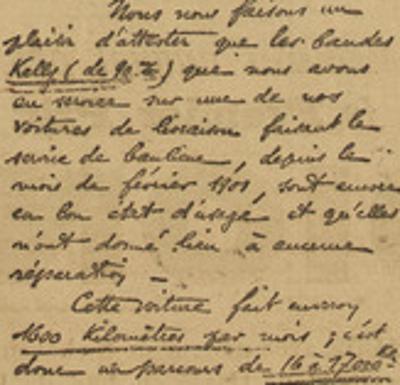 Nous nous faisons un
plaisir d'attester que les bandes
Kelly (de 90 m/m) que nous avons
en service sur une de nos
voitures de livraison faisant le
service de banlieue, depuis le
mois de février 1901, sont encore
en bon état d'usage et qu'elles
n'ont donné lieu à aucune
réparation —
Cette voiture fait environ
1600 kilomètres par mois ; c'est
donc un parcours de 16 à 17.000 Km